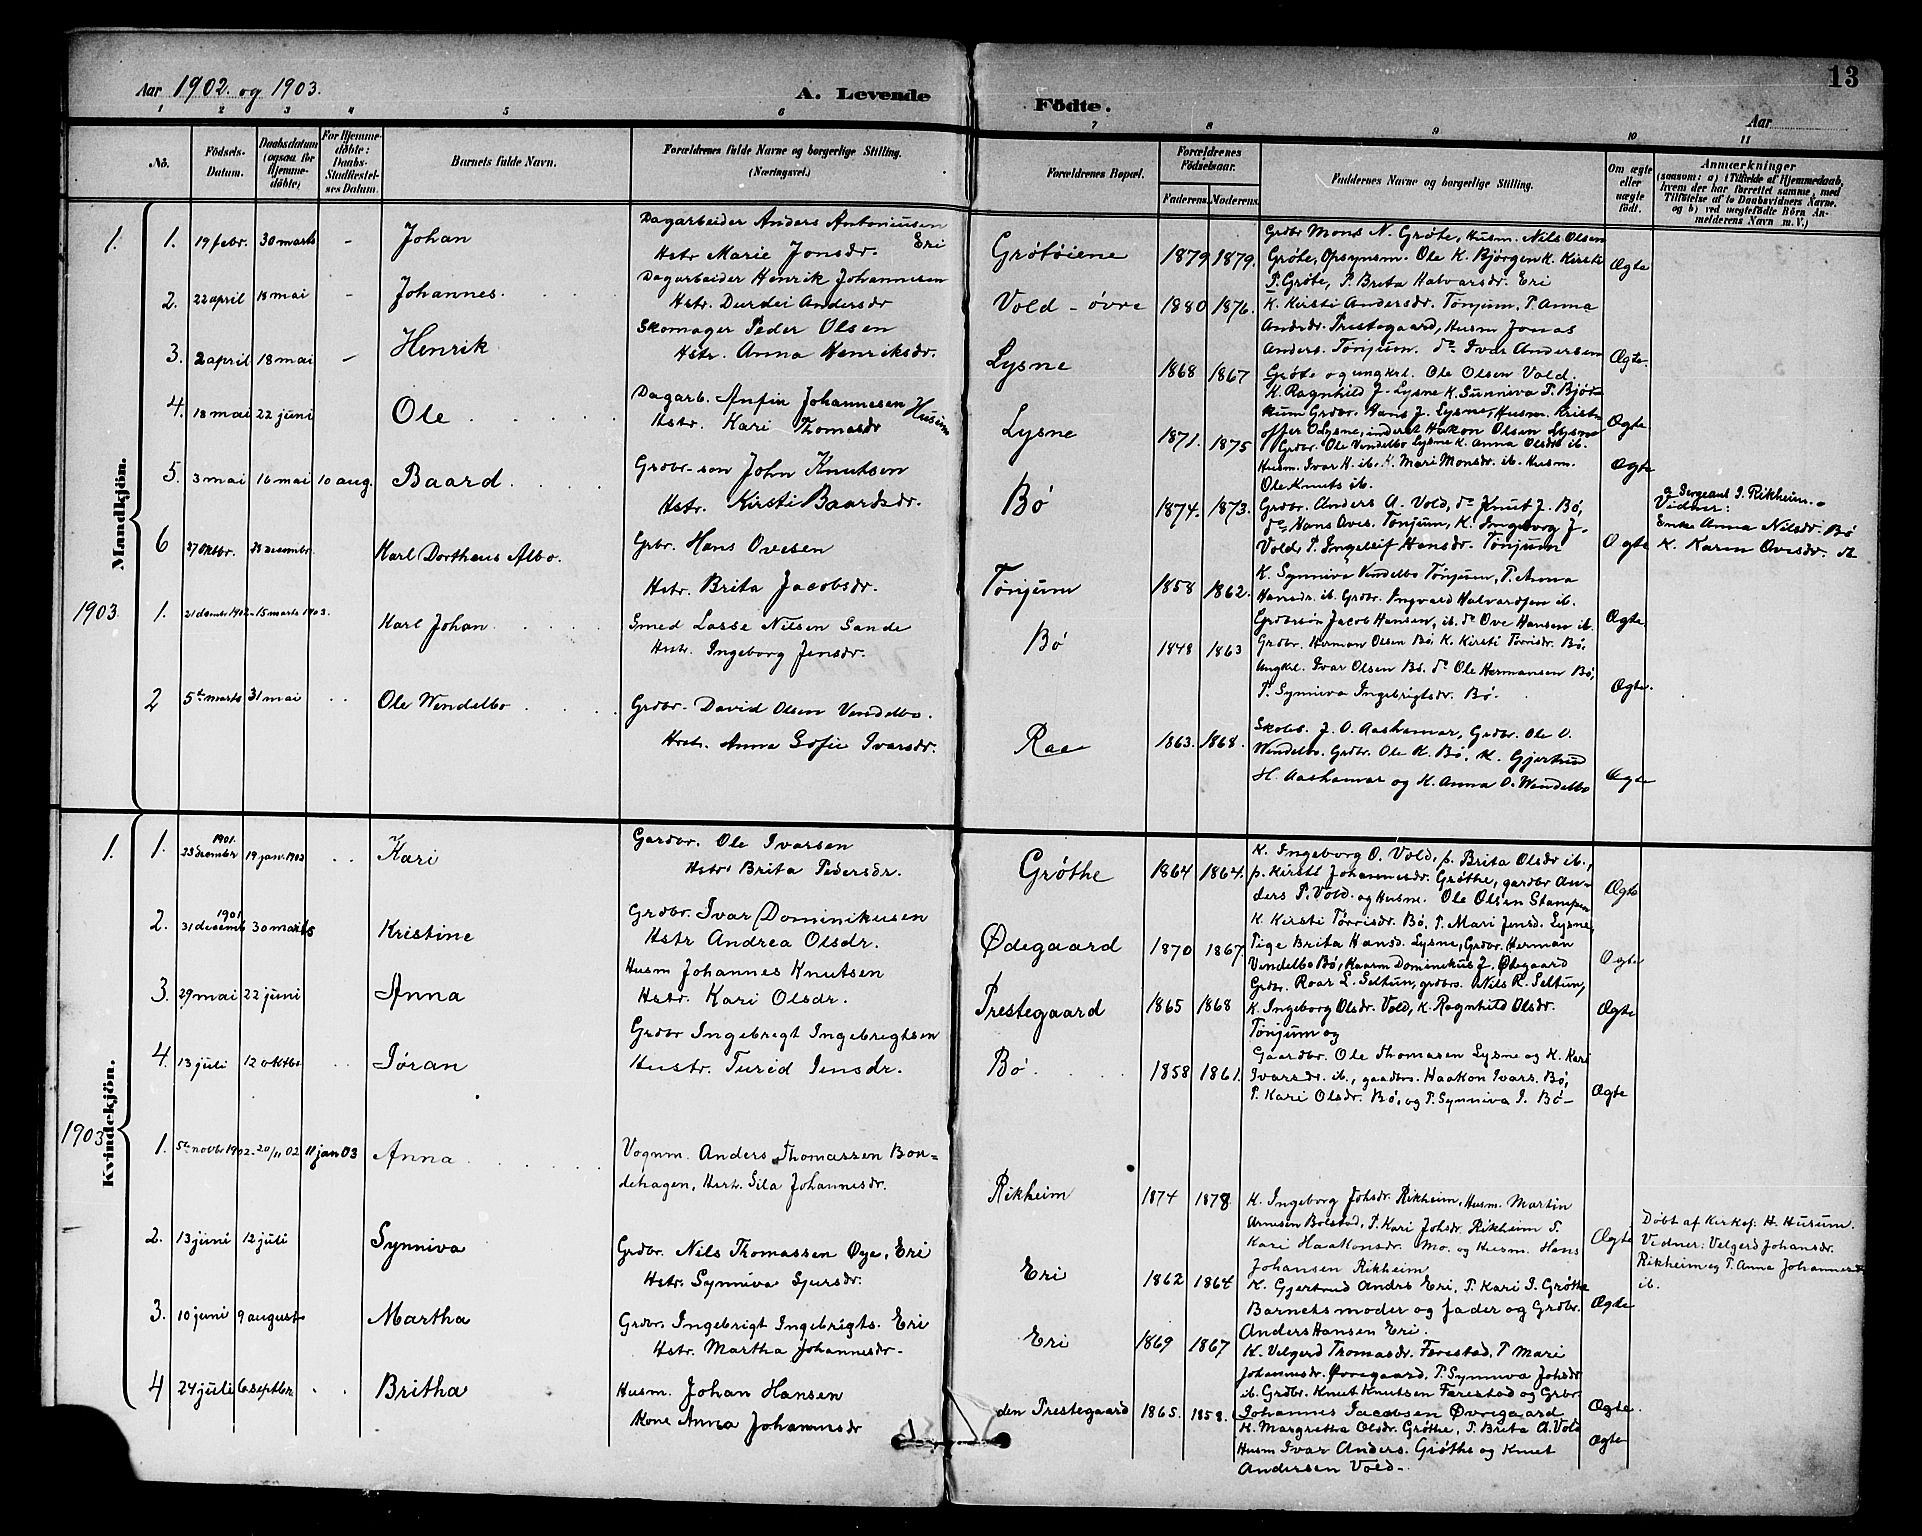 Aar 1902. og 1903.
A. Levende
Födte.
Aar
13
1 2 3 4 5 6 7 8 9 10 11
No.
Födsels-
Datum.
Daabsdatum
(ogsaa for
Hjemme-
döbte)
For Hjemme-
döbte:
Daabs-
Stadfæstel-
ses Datum.
Barnets fulde Navn.
Forældrenes fulde Navne og borgerlige Stilling.
(Næringsvei.)
Forældrenes Bopæl.
Forældrenes
Födselsaar.
Faderens. Moderens.
Faddernes Navne og borgerlige Stilling.
Om ægte
eller
uægte
födt.
Anmærkninger
(saasom: a) i Tilfælde af Hjemmedaab,
hvem der har forrettet samme, med
Tilföielse af to Daabsvidners Navne.
og b) ved uægtefödte Börn An-
melderens Navn m. V.)
Mandkjön.
1. 1. 19 febr. 30 marts - Johan
Dagarbeider Anders Antoniusen Eri
Hstr Marie Jonsdr.
Grötöiene 1879 1879.
Grdbr Mons N. Gröte, Husm. Nils Olsen
Gröte, Opsynsm. Ole K. Björgen K. Kirsti
P. Gröte, P. Brita Halvarsdr. Eri
Ægte
2. 22 april 18 mai - Johannes.
Dagarbeider Henrik Johannesen
Hstr. Durdei Andersdr
Vold - övre 1880 1876.
K. Kirsti Andersdr. Tönjum, P. Anna
Andrdr. Prestegaard, Husm Jonas
Anders. Tönjum. do Ivar Andersen
Gröte og ungkrl. Ole Olsen Vold.
Ægte
3. 2 april 18 mai - Henrik
Skomager Peder Olsen
Hstr. Anna Henriksdr.
Lysne 1868 1867
K. Ragnhild J. Lysne K. Sunniva P. Björ-
kum Grdbr. Hans J. Lysne, Husm. Krist-
offer O Lysne, inderst Hakon Olsen Lysne
Ægte
4. 18 mai 22 juni Ole
Dagarb. Anfin Johannesen Husum
Hstr. Kari Thomasdr
Lysne 1871. 1875
Grdbr. Ole Vendelbo Lysne K. Anna Olsdr ib.
Husm. Ivar H. ib. K. Mari Monsdr. ib. Husm.
Ole Knuts ib.
Ægte
5. 3 mai 16 mai 10 aug. Baard
Grdbr-son John Knutsen
Hstr. Kirsti Baardsdr.
Bö 1874. 1873.
Grdbr. Anders A. Vold, do Knut J. Bö,
do Hans Oves. Tönjum, K. Ingeborg J.
Vold, P. Ingeleif Hansdr. Tönjum
Ægte
a Sergeant I. Rikheim.
Vidner:
Enke Anna Nilsdr. Bö
K. Karen Ovesdr. st
6 27 oktbr. 28 december Karl Dortheus Albo.
Grbr. Hans Ovesen
Hstr. Brita Jacobsdr.
Tönjum 1858 1862.
K. Synniva Vendelbo Tönjum, P. Anna
Hansdr. ib. Grdbr. Ingvard Halvardsen ib.
Grdbrsön Jacob Hansen, ib. do Ove Hansen ib.
Ægte
1903 1. 21 decmbr 1902. 15 marts 1903. Karl Johan
Smed Lasse Nilsen Sande
Hustr. Ingeborg Jensdr.
Bö 1848 1863
Grdbr. Herman Olsen Bö, K. Kirsti Torrisdr. Bö,
Ungkrl. Ivar Olsen Bö. do Ole Hermansen Bö,
P. Synniva Ingebrigtsdr. Bö.
Ægte.
2 5te marts 31 mai Ole Wendelbo
Grdbr. David Olsen Vendelbo.
Hstr. Anna Sofie Ivarsdr.
Raa 1863. 1868.
Skoles. J. O. Aashamar, Grdbr. Ole O.
Wendelbo. Grdbr. Ole K. Bö, K. Gjertrud
H. Aashamar og K. Anna O. Wendelbo
Ægte
Kvindekjön.
1. 1. 23 decembr 1901. 19 jan. 1902 Kari
Gardbr. Ole Ivarsen
Hstr. Brita Pedersdr.
Gröthe 1864 1864.
K. Ingeborg O. Vold, p. Brita Olsdr ib.,
p. Kirsti Johannesdr. Gröthe, gardbr An-
ders P. Vold. og Husm. Ole Olsen Stampen
Ægte
2. 31 decemb 1901 30 marts Kristine
Grdbr. Ivar Dominikusen
Hstr Andrea Olsdr.
Ødegaard 1870 1867.
K. Kirsti Torrisdr. Bö, P. Mari Jensd. Lysne,
Pige Brita Hansd. Lysne, Grdbr. Herman
Vendelbo Bö, Kaarm Dominekus J. Ødegaard
Ægte
3. 29 mai 22 juni Anna
Husm Johannes Knutsen
Hstr. Kari Olsdr.
Prestegaard 1865 1868
Grdbr. Roar L. Seltun, grdbrs. Nils R. Seltun,
K. Ingeborg Olsdr. Vold, K. Ragnhild Olsdr.
Tönjum og
Ægte
4. 13 juli 12 oktbr Jöran
Grdbr Ingebrigt Ingebrigtsen
Hustr. Turid Jensdr.
Bö. 1858 1861.
Gaardbr. Ole Thomasen Lysne og K. Kari
Ivarsdr. ib., gaardbrs. Haakon Ivars. Bö,
P. Kari Olsdr. Bö, og P. Synniva I. Bö-
Ægte
1903 1. 5te novbr 1902. 20/11 02 11 jan 03 Anna
Vognm. Anders Thomassen Bon-
dehagen, Hstr. Sila Johannesdr.
Rikheim 1874 1878
K. Ingeborg Johsdr. Rikheim, Husm. Martin
Arnesen Bolstad, P. Kari Johsdr Rikheim P.
Kari Haakonsdr. Mo. og Husm. Hans
Johansen Rikheim
Ægte
Döbt af Kirkes. H. Husum.
Vidner: Velgerd Johansdr.
Rikheim og P. Anna Johannesdr
ib.
2. 13 juni 12 juli Synniva
Grdbr. Nils Thomassen Øye, Eri
Hstr. Synniva Sjursdr.
Eri 1862 1864
K. Gjertrud Andrs Eri, P. Kari I. Gröthe
Barnets moder og fader og Grdbr.
Anders Hansen Eri.
Ægte
3. 10 juni 9 august Martha
Grdbr. Ingebrigt Ingebrigts. Eri
Hstr. Martha Johannesdr.
Eri 1869 1867
K. Velgerd Thomasdr. Færestad, P Mari
Johannsdr. Øvregaard, P. Synniva Johsdr
ib. Grdbr. Knut Knutsen Færestad og Grbr.
Johannes Jacobsen Øvregaard
Ægte.
4 24 juli 6 septbr Britha
Husm. Johan Hansen
Kone Anna Johannsdr
den Prestegaard 1865. 1858.
K. Margretha Olsdr. Gröthe, P. Brita A. Vold
Husm Ivar Anders. Gröthe og Knut
Andersen Vold.
Ægte